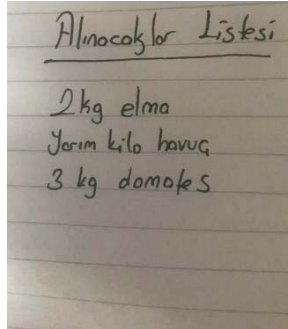 Alınacaklar Listesi
2 kg elma
Yarım kilo havuç
3 kg domates